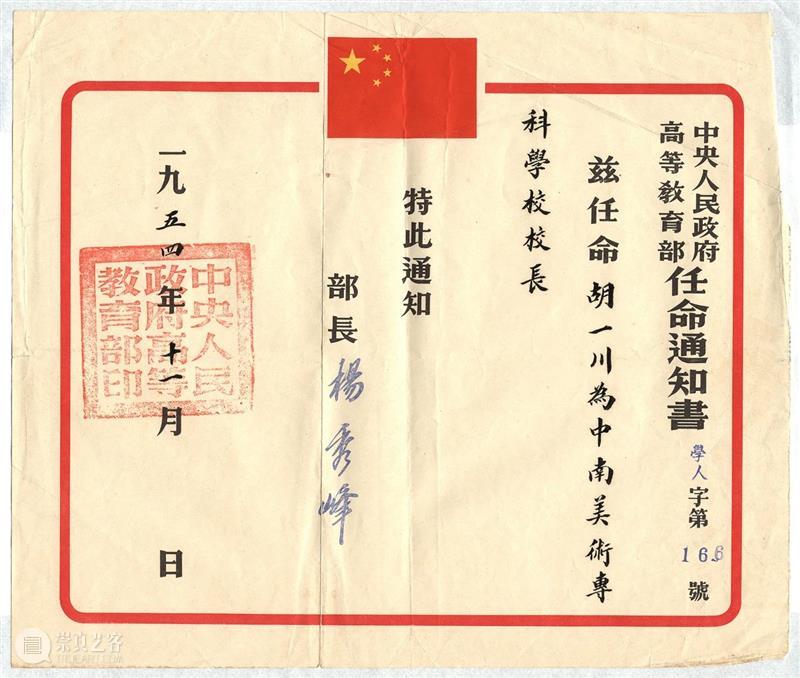 中央人民政府
高等教育部
任命通知書
學人字第166號
兹任命胡一川為中南美術專
科學校校長
特此通知
部長 楊秀峰
一九五四年十一月 日
中央人民
政府高等
教育部印
崇真艺客